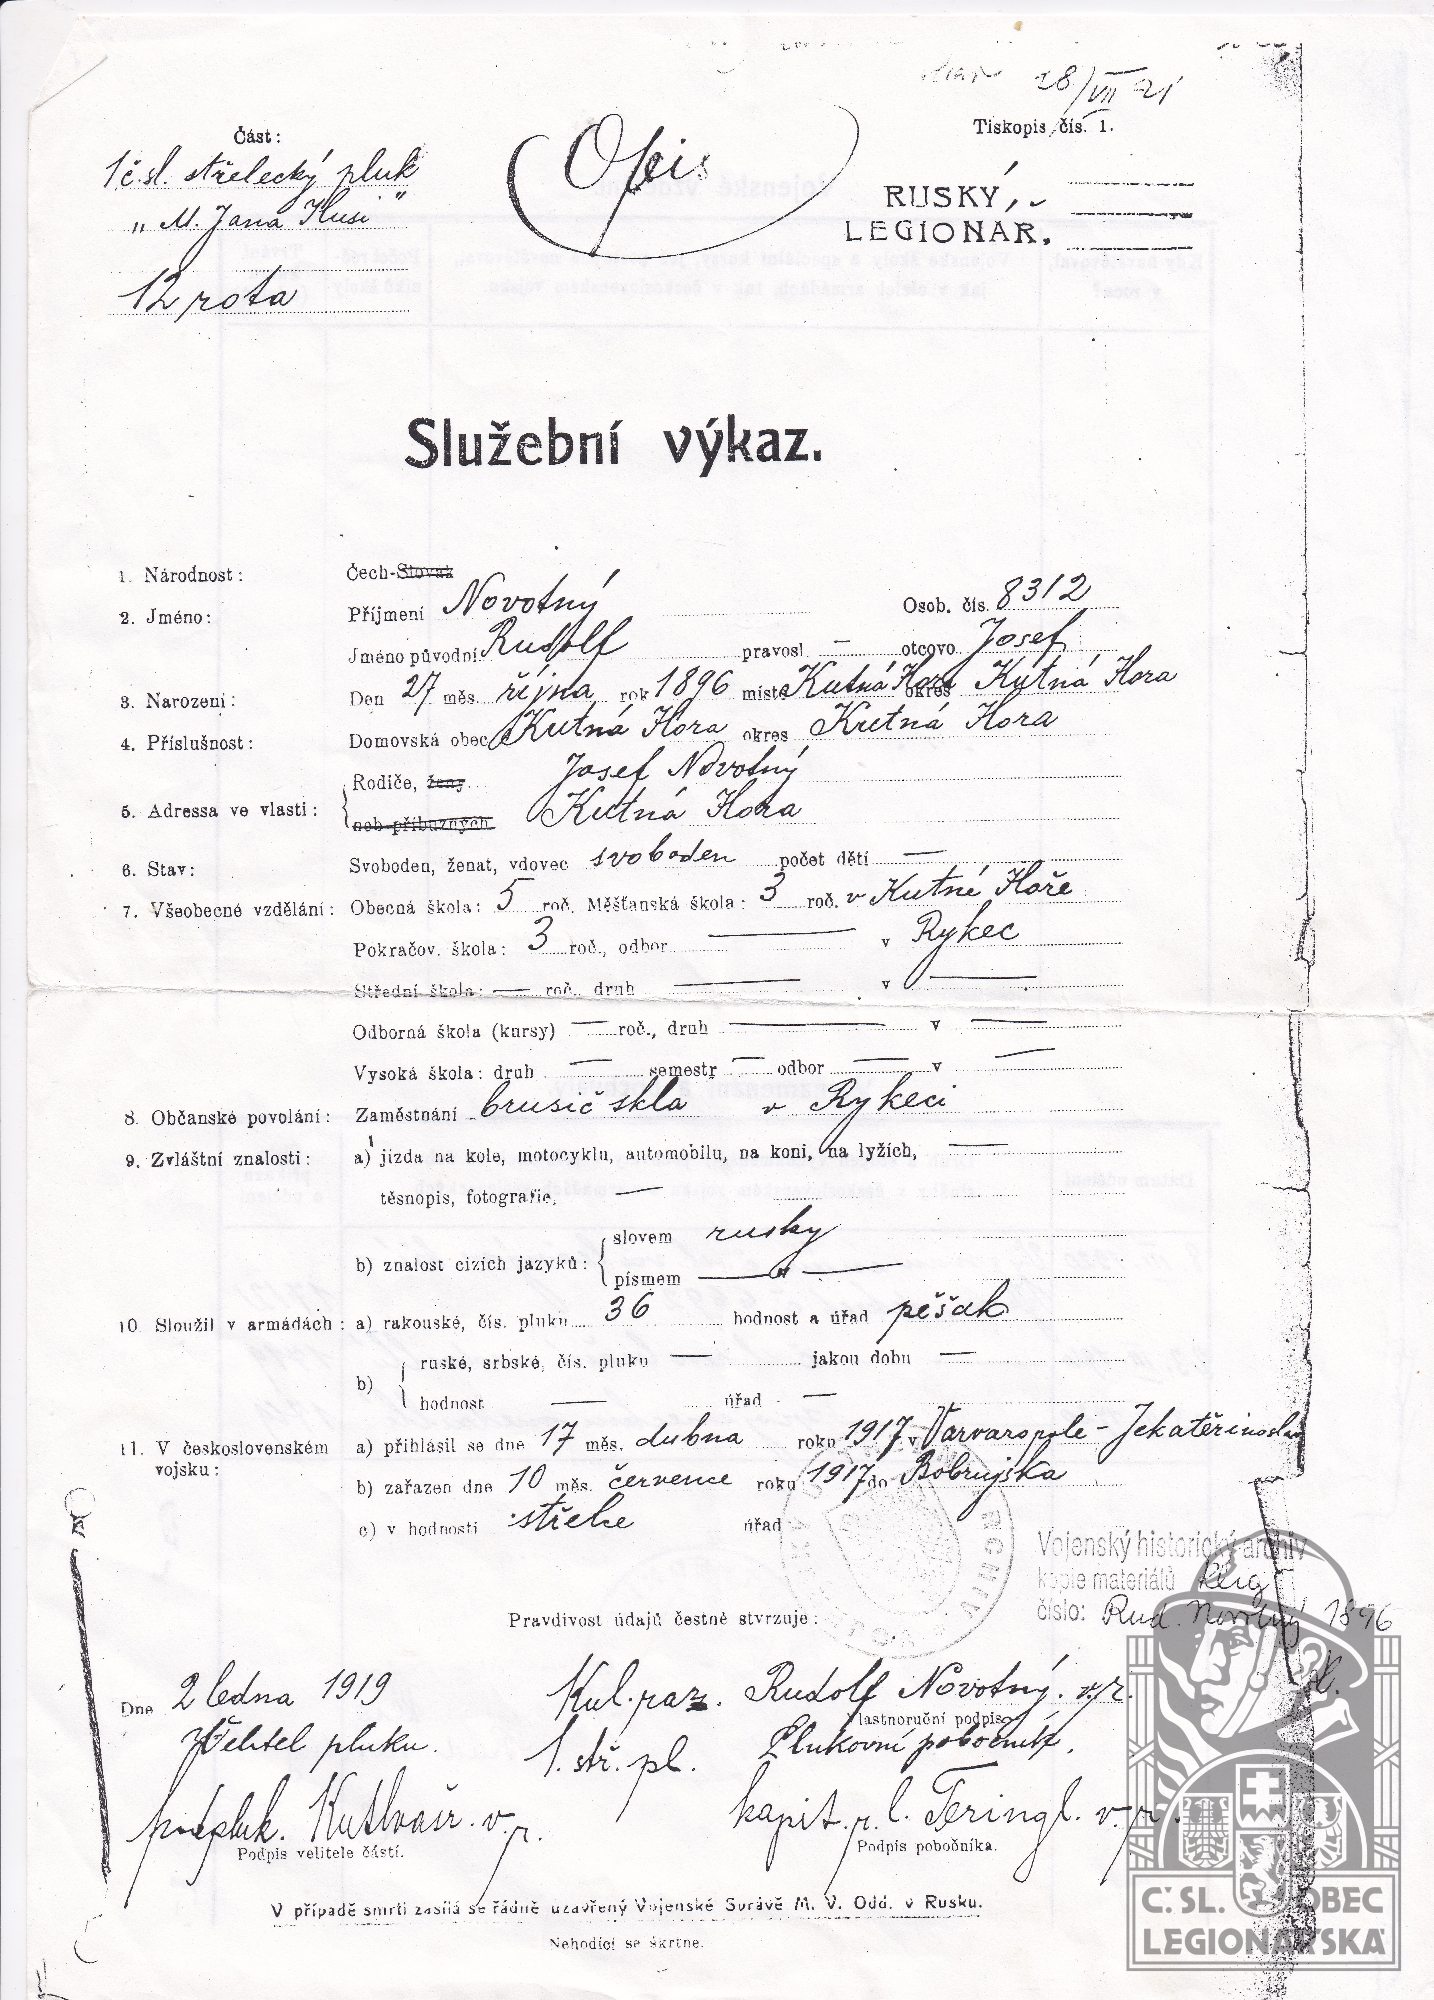 28/VII 21
Část:
Tiskopis čís. 1.
1 č.sl. střelecký pluk
Opis
„M. Jana Husi"
RUSKÝ
LEGIONÁŘ.
12 rota
Služební výkaz.
1. Národnost: Čech-Slovák
2. Jméno: Příjmení Novotný Osob. čís. 8312
Jméno původní Rudolf pravosl. — otcovo Josef
3. Narozeni: Den 27 měs. října rok 1896 místo Kutná Hora okres Kutná Hora
4. Příslušnost: Domovská obec Kutná Hora okres Kutná Hora
Rodiče, ženy Josef Novotný
5. Adressa ve vlasti:
neb příbuzných Kutná Hora
6. Stav: Svoboden, ženat, vdovec svoboden počet dětí —
7. Všeobecné vzdělání: Obecná škola: 5 roč. Měšťanská škola: 3 roč. v Kutné Hoře
Pokračov. škola: 3 roč., odbor — v Rykec
Střední škola: — roč. druh — v —
Odborná škola (kursy) — roč., druh — v —
Vysoká škola: druh — semestr — odbor — v —
8. Občanské povolání: Zaměstnání brusič skla v Rykeci
9. Zvláštní znalosti: a) jízda na kole, motocyklu, automobilu, na koni, na lyžích, —
těsnopis, fotografie, —
slovem rusky
b) znalost cizích jazyků:
písmem — „ —
10. Sloužil v armádách: a) rakouské, čís. pluku 36 hodnost a úřad pěšák
ruské, srbské, čís. pluku — jakou dobu —
b)
hodnost — úřad —
11. V československém a) přihlásil se dne 17 měs. dubna roku 1917 v Varvaropole - Jekatěrinoslav
vojsku:
b) zařazen dne 10 měs. července roku 1917 do Bobrujska
c) v hodnosti střelce úřad
Vojenský historický archiv
kopie materiálů
číslo: Rud. Novotný 1896
Pravdivost údajů čestně stvrzuje:
Dne 2 ledna 1919 Kul. raz. Rudolf Novotný. v.r.
vlastnoruční podpis
Velitel pluku. 1. stř. pl. Plukovní pobočník.
podpluk. Kutlvašr. v.r. kapit. p. l. Teringl. v.r.
Podpis velitele části. Podpis pobočníka.
V případě smrti zasílá se řádně uzavřený Vojenské Správě M. V. Odd. v Rusku.
Nehodící se škrtne.
Č. SL. OBEC
LEGIONÁŘSKÁ